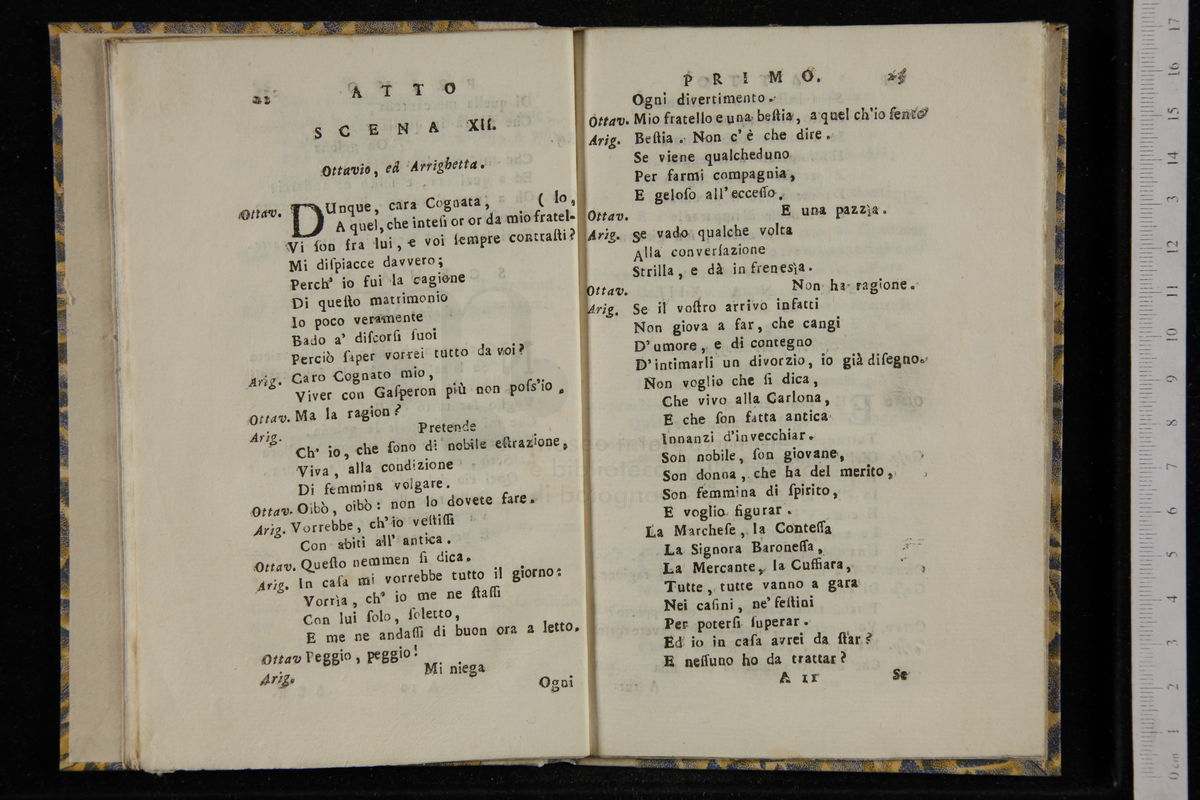 22 ATTO
SCENA XII.
Ottavio, ed Arrighetta.
Ottav. DUnque, cara Cognata, ( Io,
A quel, che inteſi or or da mio fratel-
Vi ſon fra lui, e voi ſempre contraſti?
Mi diſpiacce davvero;
Perch' io fui la cagione
Di queſto matrimonio
Io poco veramente
Bado a' diſcorſi ſuoi
Perciò ſaper vorrei tutto da voi?
Arig. Caro Cognato mio,
Viver con Gaſperon più non poſs'io.
Ottav. Ma la ragion?
Arig. Pretende
Ch' io, che ſono di nobile eſtrazione,
Viva, alla condizione
Di femmina volgare.
Ottav. Oibò, oibò: non lo dovete fare.
Arig. Vorrebbe, ch'io veſtiſſi
Con abiti all' antica.
Ottav. Queſto nemmen ſi dica.
Arig. In caſa mi vorrebbe tutto il giorno:
Vorrìa, ch' io me ne ſtaſſi
Con lui ſolo, ſoletto,
E me ne andaſſi di buon ora a letto.
Ottav Peggio, peggio!
Arig. Mi niega
Ogni
PRIMO.
Ogni divertimento.
Ottav. Mio fratello e una beſtia, a quel ch'io ſento
Arig. Beſtia. Non c'è che dire.
Se viene qualcheduno
Per farmi compagnia,
E geloſo all' ecceſſo.
Ottav. E una pazzìa.
Arig. Se vado qualche volta
Alla converſazione
Strilla, e dà in freneſia.
Ottav. Non ha ragione.
Arig. Se il voſtro arrivo infatti
Non giova a far, che cangi
D'umore, e di contegno
D'intimarli un divorzio, io già diſegno.
Non voglio che ſi dica,
Che vivo alla Carlona,
E che ſon fatta antica
Innanzi d'invecchiar.
Son nobile, ſon giovane,
Son donna, che ha del merito,
Son femmina di ſpirito,
E voglio figurar.
La Marcheſe, la Conteſſa
La Signora Baroneſſa,
La Mercante, la Cuffiara,
Tutte, tutte vanno a gara
Nei caſini, ne' feſtini
Per poterſi ſuperar.
Ed io in caſa avrei da ſtar?
E neſſuno ho da trattar?
A 11 Se